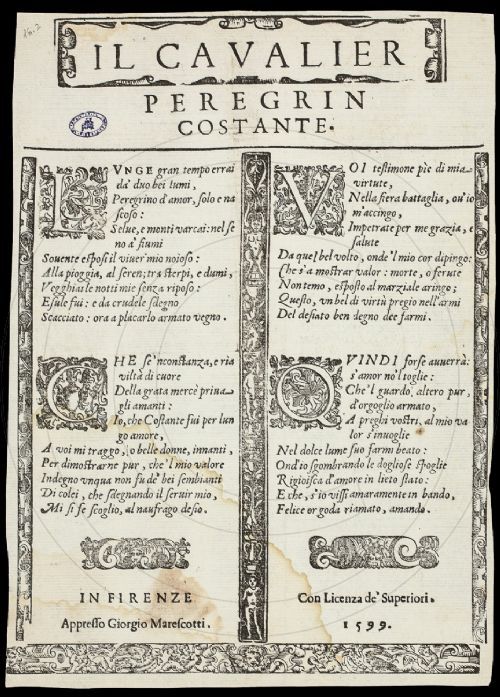 IL CAVALIER
PEREGRIN
COSTANTE.
LVNGE gran tempo errai
da' duo bei lumi,
Peregrino d'amor, solo e na
scoso:
Selue, e monti varcai: nel se
no a' fiumi
Souente esposi il viuer mio noioso:
Alla pioggia, al seren; tra sterpi, e dumi,
Vegghiai le notti mie senza riposo:
Esule fui: e da crudele sdegno
Scacciato: ora a placarlo armato vegno.
CHE se 'nconstanza, e ria
viltà di cuore
Della grata mercè priua
gli amanti:
Io, che Costante fui per lun
go amore,
A voi mi traggo, o belle donne, innanti,
Per dimostrarne pur, che 'l mio valore
Indegno vnqua non fu de' bei sembianti
Di colei, che sdegnando il seruir mio,
Mi si fe scoglio, al naufrago desio.
VOI testimone piè di mia
virtute,
Nella fiera battaglia, ou' io
m'accingo,
Impetrate per me grazia, e
salute
Da quel bel volto, onde 'l mio cor dipingo:
Che s'a mostrar valor: morte, o ferute
Non temo, esposto al marziale aringo;
Questo, vn bel di virtù pregio nell'armi
Del desiato ben degno dee farmi.
QVINDI forse auuerrà:
s'amor no'l toglie:
Che 'l guardo, altero pur,
d'orgoglio armato,
A preghi vostri, al mio va
lor s'inuoglie
Nel dolce lume suo farmi beato:
Ond'io sgombrando le dogliose spoglie
Rigioisca d'amore in lieto stato:
E che, s'io vissi amaramente in bando,
Felice or goda riamato, amando.
IN FIRENZE
Appresso Giorgio Marescotti.
Con Licenza de' Superiori.
1599.